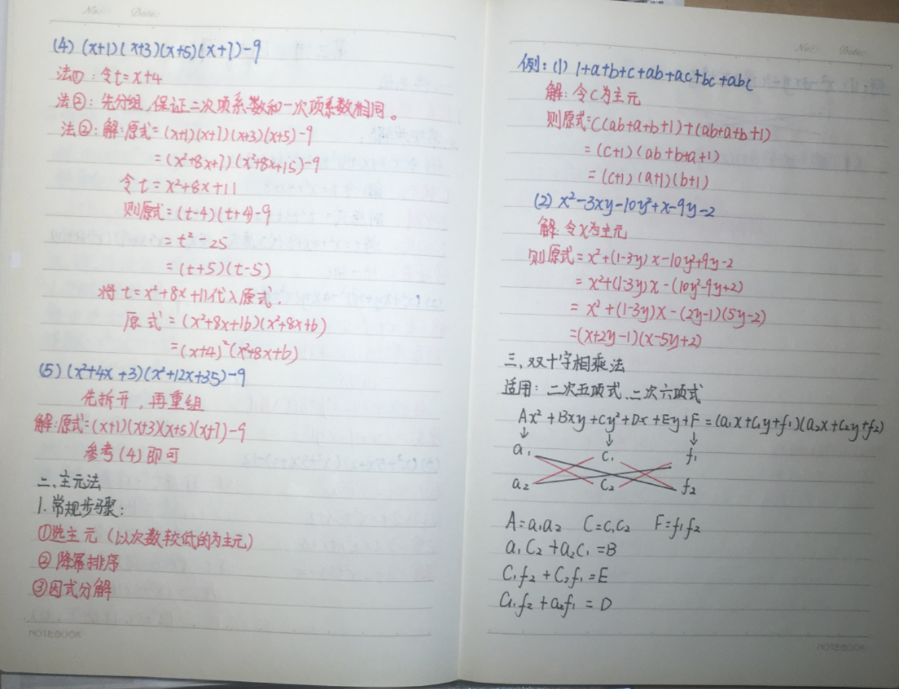 No: Date:
(4) (x+1)(x+3)(x+5)(x+7)-9
法①:令t=x+4
法②:先分组,保证二次项系数和一次项系数相同。
法②:解:原式=(x+1)(x+7)(x+3)(x+5)-9
=(x²+8x+7)(x²+8x+15)-9
令t=x²+8x+11
则原式=(t-4)(t+4)-9
=t²-25
=(t+5)(t-5)
将t=x²+8x+11代入原式:
原式=(x²+8x+16)(x²+8x+6)
=(x+4)²(x²+8x+6)
(5) (x²+4x+3)(x²+12x+35)-9
先拆开,再重组
解:原式=(x+1)(x+3)(x+5)(x+7)-9
参考(4)即可
二、主元法
1.常规步骤:
①选主元(以次数较低的为主元)
②降幂排序
③因式分解
NOTEBOOK
No: Date:
例:(1) 1+a+b+c+ab+ac+bc+abc
解:令C为主元
则原式=C(ab+a+b+1)+(ab+a+b+1)
=(c+1)(ab+b+a+1)
=(c+1)(a+1)(b+1)
(2) x²-3xy-10y²+x-9y-2
解:令x为主元
则原式=x²+(1-3y)x-10y²+9y-2
=x²+(1-3y)x-(10y²-9y+2)
=x²+(1-3y)x-(2y-1)(5y-2)
=(x+2y-1)(x-5y+2)
三、双十字相乘法
适用:二次五项式、二次六项式
Ax²+Bxy+Cy²+Dx+Ey+F=(a₁x+C₁y+f₁)(a₂x+C₂y+f₂)
a₁ C₁ f₁
a₂ C₂ f₂
A=a₁a₂ C=C₁C₂ F=f₁f₂
a₁C₂+a₂C₁=B
C₁f₂+C₂f₁=E
a₁f₂+a₂f₁=D
NOTEBOOK